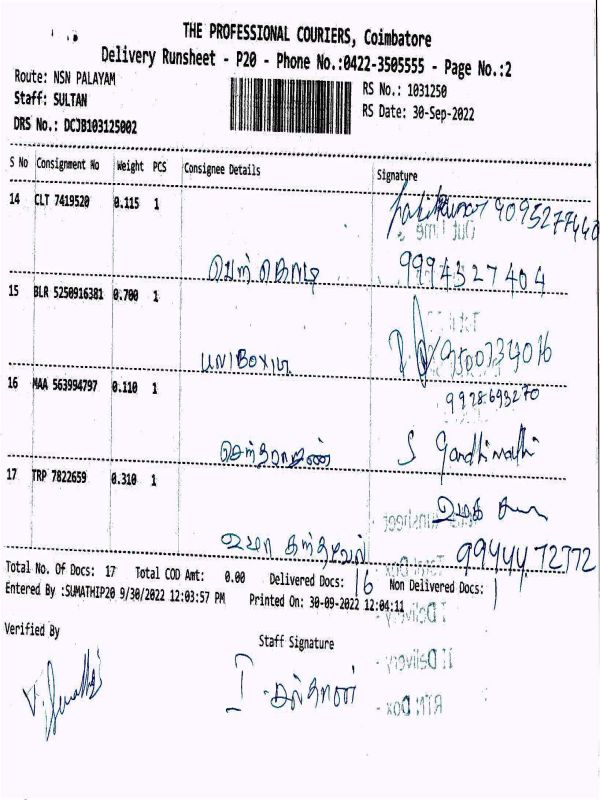 THE PROFESSIONAL COURIERS, Coimbatore
Delivery Runsheet - P20 - Phone No.:0422-3505555 - Page No.:2
Route: NSN PALAYAM
RS No.: 1031250
Staff: SULTAN
RS Date: 30-Sep-2022
DRS No.: DCJB103125002
S No Consignment No Weight PCS Consignee Details Signature
14 CLT 7419520 0.115 1 9095277440
9994327404
15 BLR 5250916381 0.700 1
UNIBOXIM
16 MAA 563994797 0.110 1 9928693270
S Gandhimathi
17 TRP 7822659 0.310 1
உமா கந்தவேல் 99444 72372
Total No. Of Docs: 17 Total COD Amt: 0.00 Delivered Docs: 16 Non Delivered Docs: 1
Entered By :SUMATHIP20 9/30/2022 12:03:57 PM Printed On: 30-09-2022 12:04:11
Verified By
Staff Signature
I சுல்தான்